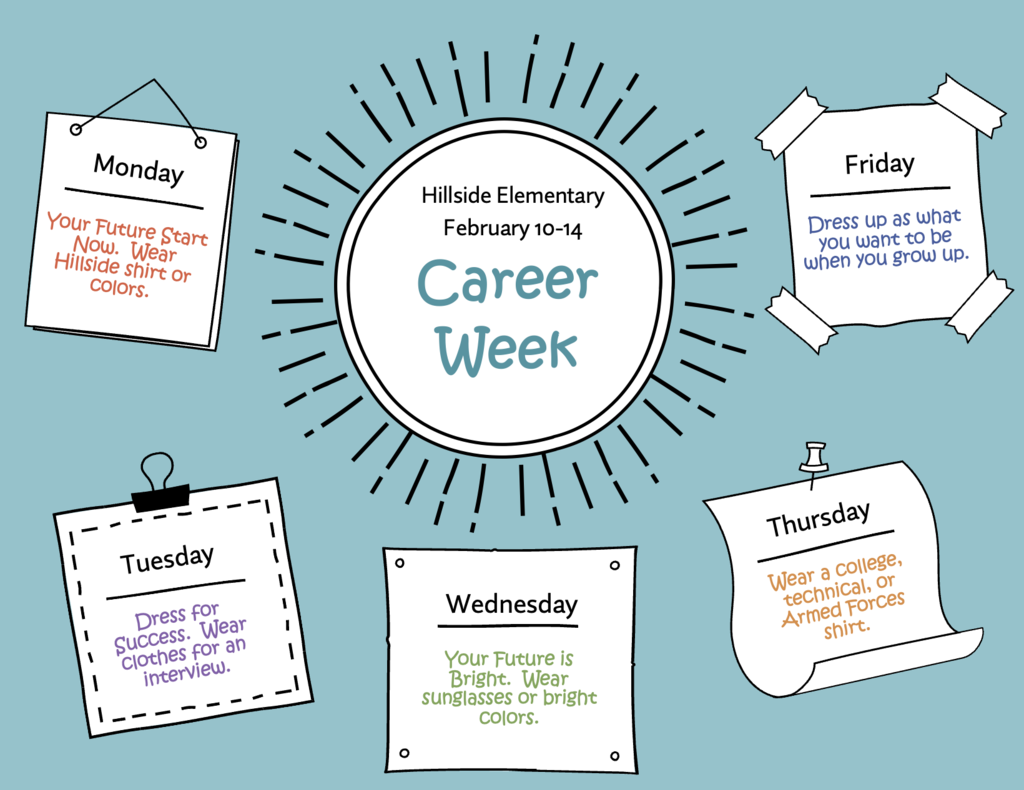 Hillside Elementary
February 10-14
Career
Week
Monday
Your Future Start
Now. Wear
Hillside shirt or
colors.
Tuesday
Dress for
Success. Wear
clothes for an
interview.
Wednesday
Your Future is
Bright. Wear
sunglasses or bright
colors.
Thursday
Wear a college,
technical, or
Armed Forces
shirt.
Friday
Dress up as what
you want to be
when you grow up.